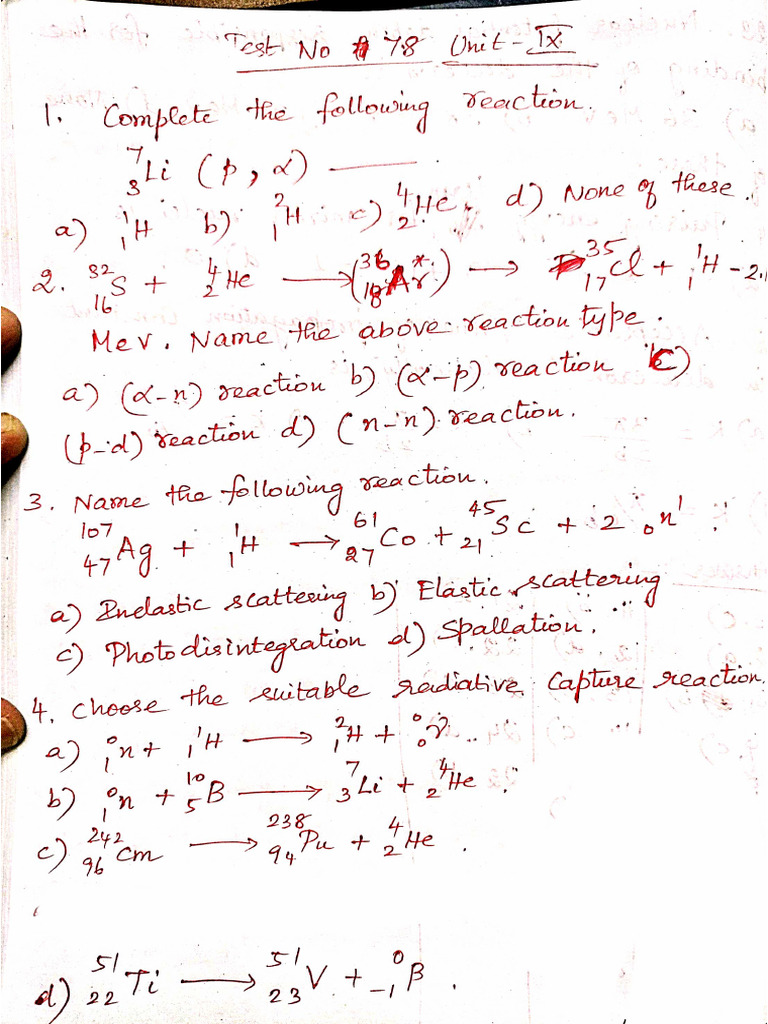 Test No 78 Unit - IX.
1. Complete the following reaction.
⁷₃Li (p, α) ———
a) ¹₁H b) ²₁H c) ⁴₂He. d) None of these.
2. ³²₁₆S + ⁴₂He ⟶ (³⁶₁₈Ar*) ⟶ ³⁵₁₇Cl + ¹₁H - 2.
Mev. Name the above reaction type.
a) (α-n) reaction b) (α-p) reaction c)
(p-d) reaction d) (n-n) reaction.
3. Name the following reaction.
¹⁰⁷₄₇Ag + ¹₁H ⟶ ⁶¹₂₇Co + ⁴⁵₂₁Sc + 2 ₀n¹.
a) Inelastic scattering b) Elastic scattering
c) Photodisintegration d) Spallation.
4. Choose the suitable radiative capture reaction.
a) ⁰₁n + ¹₁H ⟶ ²₁H + ⁰₀γ.
b) ⁰₁n + ¹⁰₅B ⟶ ⁷₃Li + ⁴₂He.
c) ²⁴²₉₆Cm ⟶ ²³⁸₉₄Pu + ⁴₂He.
d) ⁵¹₂₂Ti ⟶ ⁵¹₂₃V + ⁰₋₁β.